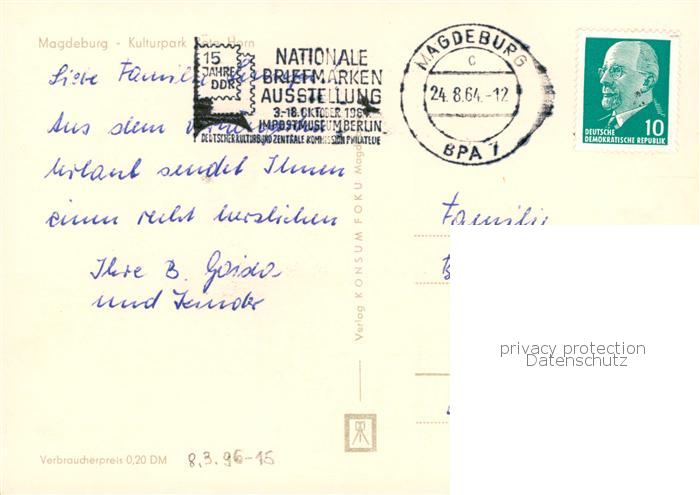 Magdeburg - Kulturpark Rote Horn
15
JAHRE
DDR
NATIONALE
BRIEFMARKEN
AUSSTELLUNG
3.-18. OKTOBER 1964
IM POSTMUSEUM BERLIN
DEUTSCHER KULTURBUND ZENTRALE KOMMISSION PHILATELIE
MAGDEBURG
C
24.8.64.-12
BPA 1
DEUTSCHE
DEMOKRATISCHE REPUBLIK
10
Liebe Familie
Aus dem
Urlaub sendet Ihnen
einen recht herzlichen
Ihre B. Gaida
und Kinder
Verlag KONSUM FOKU Magde
Familie
privacy protection
Datenschutz
Verbraucherpreis 0,20 DM
8.3.96-15